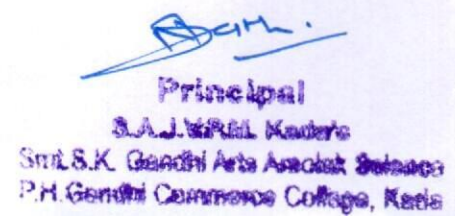 Principal
Kada's
Smt. S.K. Gandhi Arts Amolak Science
P.H. Gandhi Commerce College, Kada